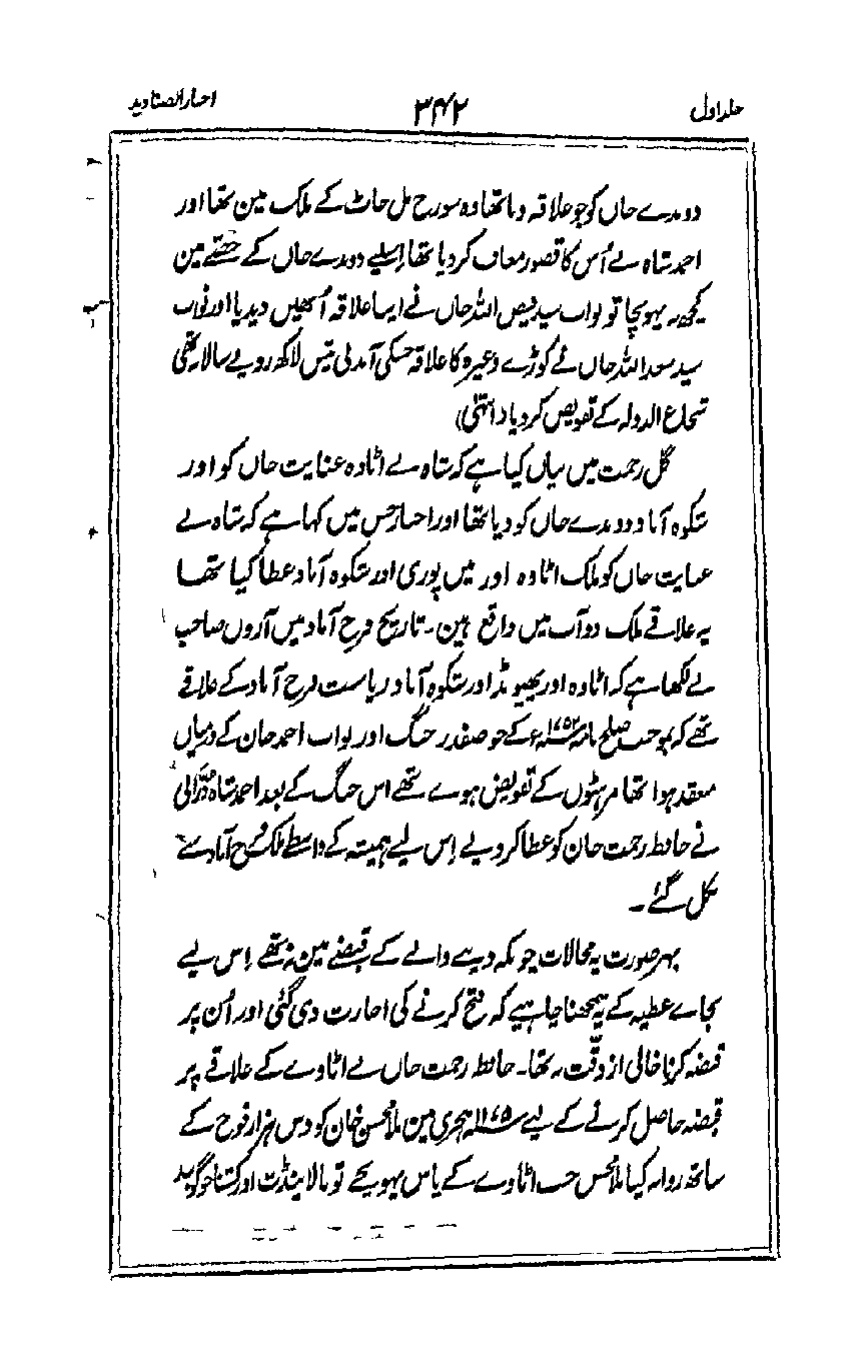 جلد اول
۳۴۲
اخبار الصنادید
دوندے خاں کو جو علاقہ دیا تھا وہ سورج مل جاٹ کے ملک مین تھا اور
احمد شاہ نے اُس کا قصور معاف کر دیا تھا اِسلیے دوندے خاں کے حصّے مین
کچھ نہ پہونچا تو نواب سید فیض اللہ خاں نے اپنا علاقہ اُنھیں دیدیا اور نواب
سید سعد اللہ خاں نے کوڑے وغیرہ کا علاقہ جسکی آمدنی تیس لاکھ روپے سالانہ تھی
شجاع الدولہ کے تفویض کر دیا (انتہٰی)
گل رحمت میں بیاں کیا ہے کہ شاہ نے اٹاوہ عنایت خاں کو اور
شکوہ آباد دوندے خاں کو دیا تھا اور اخبار حسن میں کہا ہے کہ شاہ نے
عنایت خاں کو ملک اٹاوہ اور میں پوری اور شکوہ آباد عطا کیا تھا
یہ علاقے ملک دوآب میں واقع ہین۔ تاریخ فرخ آباد میں آروں صاحب
نے لکھا ہے کہ اٹاوہ اور پھپونڈ اور شکوہ آباد ریاست فرخ آباد کے علاقے
تھے کہ بموجب صلح نامہ ۱۷۵۲ء کے جو صفدر جنگ اور نواب احمد خان کے درمیاں
منعقد ہوا تھا مرہٹوں کے تفویض ہوے تھے اس جنگ کے بعد احمد شاہ دُرّانی
نے حافظ رحمت خان کو عطا کر دیے اِس لیے ہمیشہ کے واسطے ملک فرخ آباد سے
نکل گئے۔
بہر صورت یہ محالات چونکہ دینے والے کے قبضے مین نہ تھے اِس لیے
بجاے عطیہ کے یہ سمجھنا چاہیے کہ فتح کرنے کی اجازت دی گئی اور اُن پر
قبضہ کرنا خالی از دقّت نہ تھا۔ حافظ رحمت خاں نے اٹاوے کے علاقے پر
قبضہ حاصل کرنے کے لیے ۱۱۷۵ ہجری مین ملا محسن خان کو دس ہزار فوج کے
ساتھ روانہ کیا ملا محسن جب اٹاوے کے پاس پہونچے تو بالا پنڈت اور کشنا جو گوبند